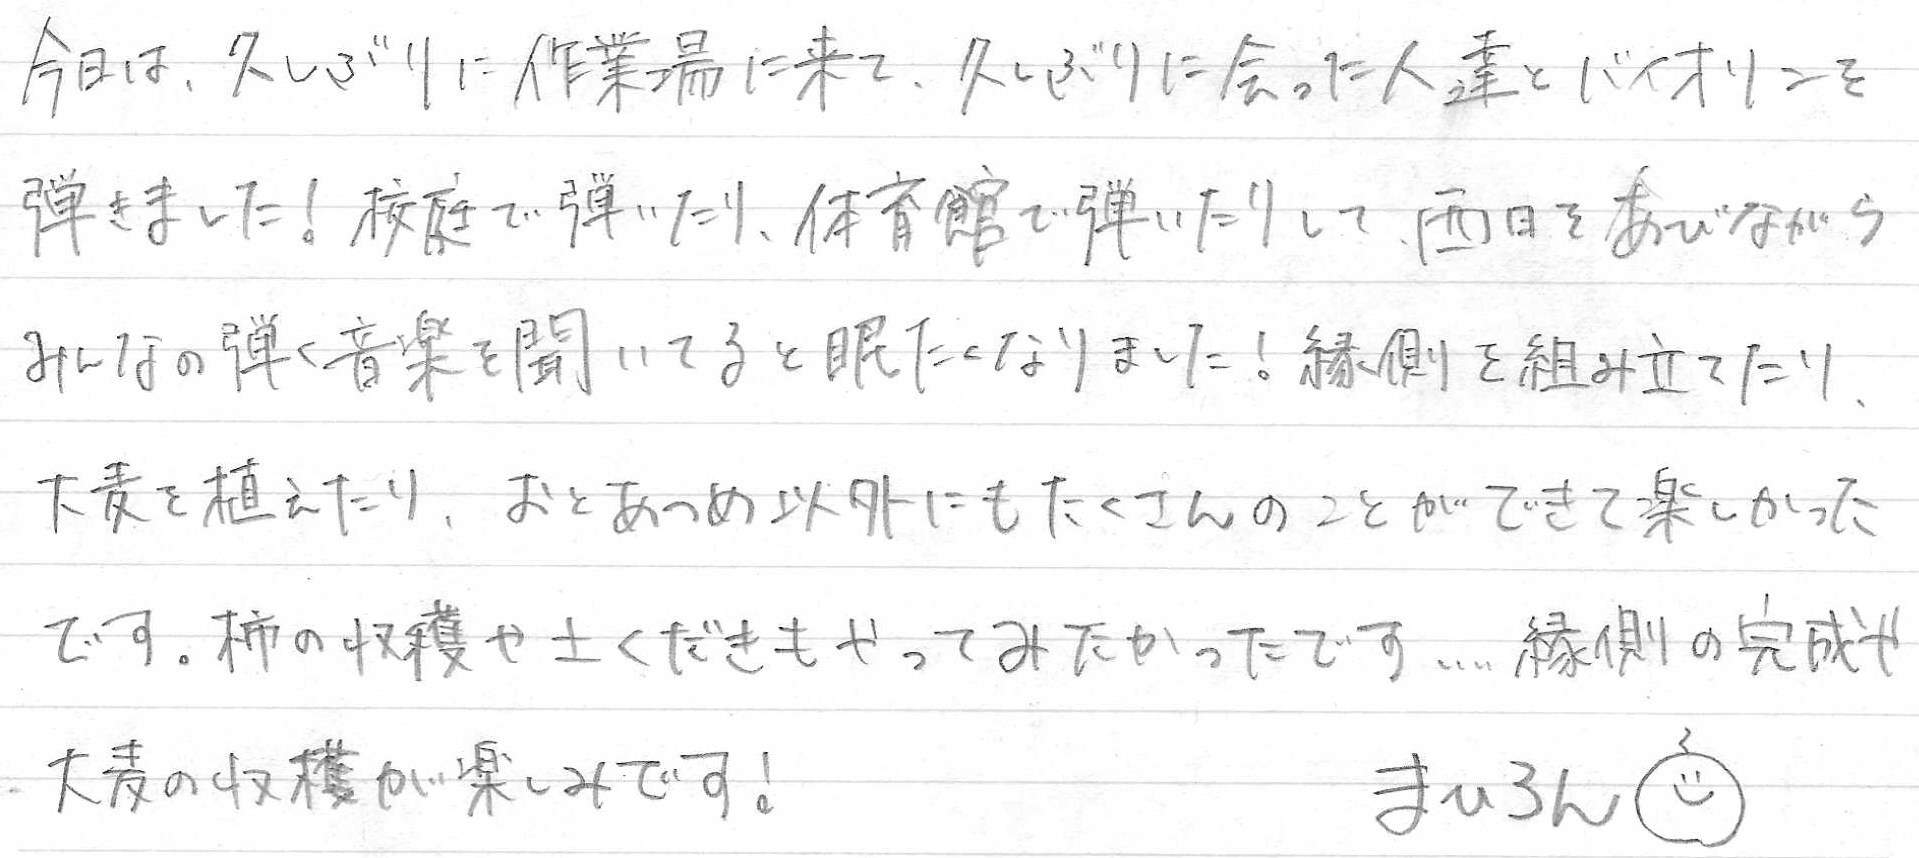 今日は、久しぶりに作業場に来て、久しぶりに会った人達とバイオリンを
弾きました！校庭で弾いたり、体育館で弾いたりして、西日をあびながら
みんなの弾く音楽を聞いてると眠たくなりました！縁側を組み立てたり、
大麦を植えたり、おとあつめ以外にもたくさんのことができて楽しかった
です。柿の収穫や土くだきもやってみたかったです....縁側の完成や
大麦の収穫が楽しみです！
まひろん